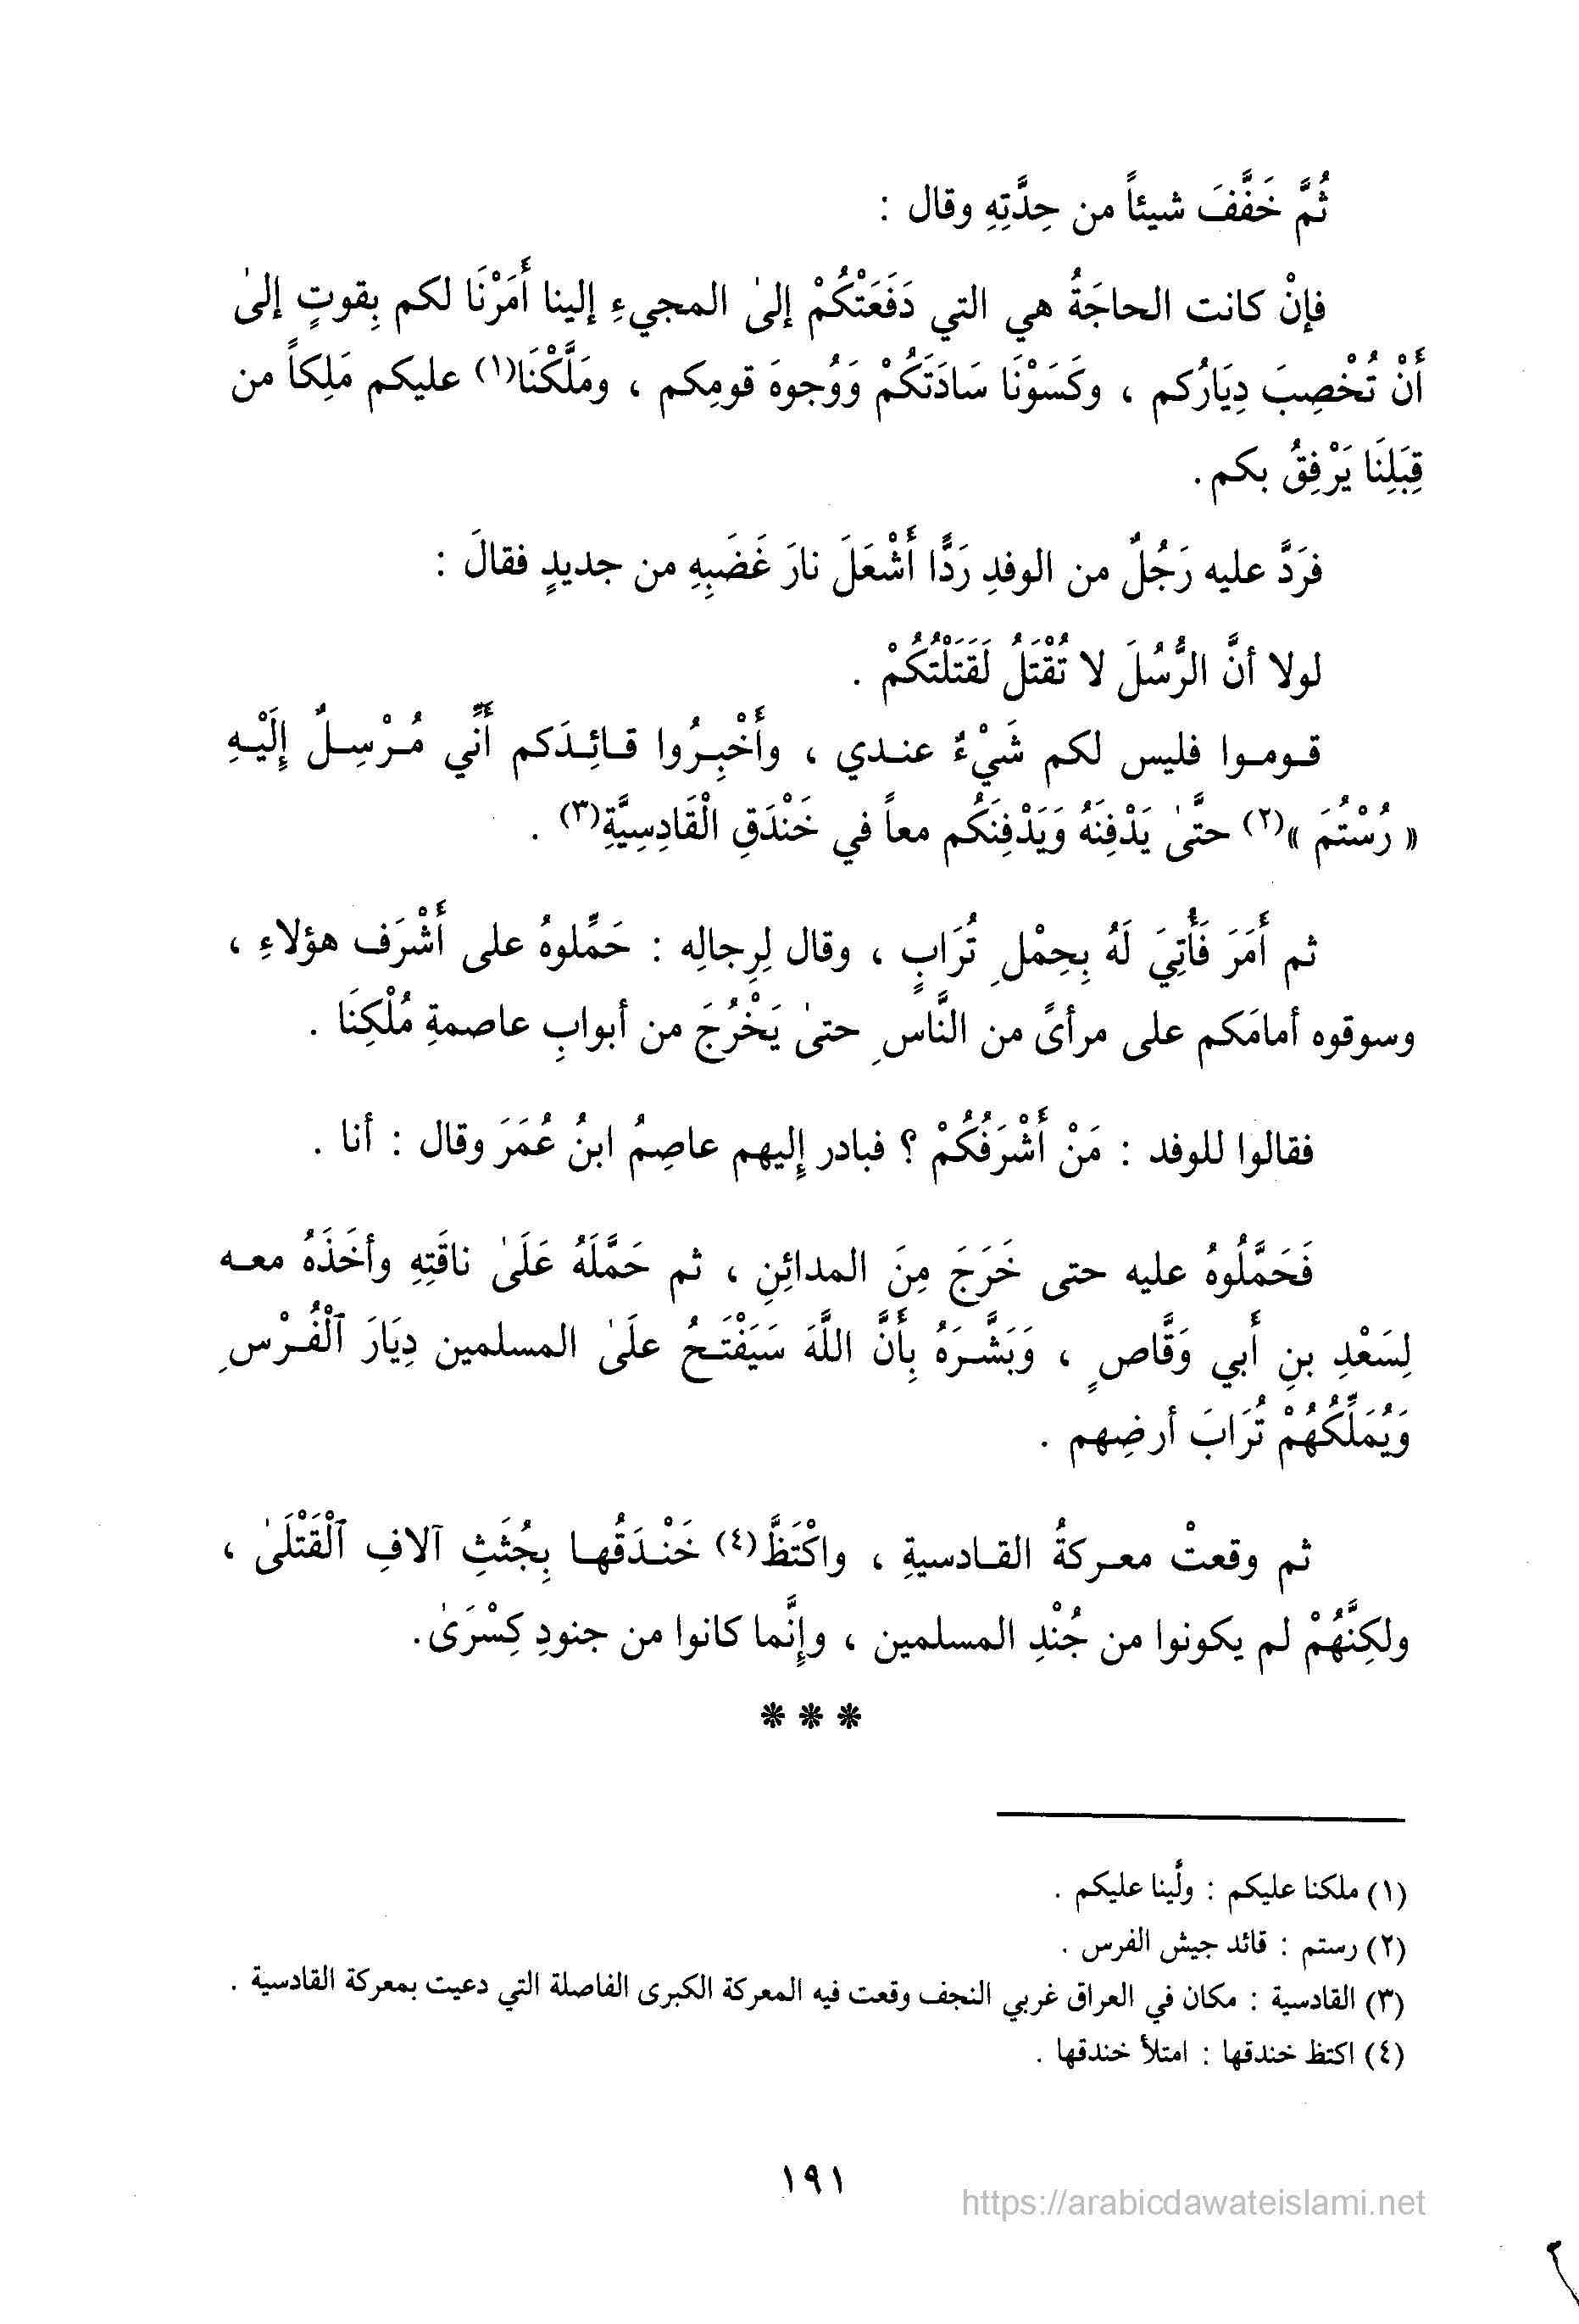 ثُمَّ خَفَّفَ شيئاً من حِدَّتِهِ وقال :
فإنْ كانت الحاجَةُ هي التي دَفَعَتْكُمْ إلىٰ المجيءِ إلينا أَمَرْنَا لكم بِقوتٍ إلىٰ
أَنْ تُخْصِبَ دِيَارُكم ، وكَسَوْنَا سَادَتَكُمْ وَوُجوهَ قومِكم ، ومَلَّكْنَا(١) عليكم مَلِكاً من
قِبَلِنَا يَرْفِقُ بكم.
فرَدَّ عليه رَجُلٌ من الوفدِ رَدًّا أَشْعَلَ نارَ غَضَبِهِ من جديدٍ فقالَ :
لولا أنَّ الرُّسُلَ لا تُقْتَلُ لَقَتَلْتُكُمْ .
قوموا فليس لكم شَيْءٌ عندي ، وأَخْبِرُوا قائِدَكم أَنِّي مُرْسِلٌ إِلَيْهِ
« رُسْتُمَ »(٢) حتَّىٰ يَدْفِنَهُ وَيَدْفِنَكُم معاً في خَنْدَقِ الْقَادِسِيَّةِ(٣) .
ثم أَمَرَ فَأُتِيَ لَهُ بِحِمْلِ تُرَابٍ ، وقال لِرِجالِه : حَمِّلوهُ على أَشْرَف هؤلاءِ ،
وسوقوه أمامَكم على مرأىً من النَّاسِ حتىٰ يَخْرُجَ من أبوابِ عاصمةِ مُلْكِنَا .
فقالوا للوفد : مَنْ أَشْرَفُكُمْ ؟ فبادر إليهم عاصِمُ ابنُ عُمَرَ وقال : أنا .
فَحَمَّلُوهُ عليه حتى خَرَجَ مِنَ المدائِنِ ، ثم حَمَّلَهُ عَلَىٰ ناقَتِهِ وأخَذَهُ معه
لِسَعْدِ بنِ أَبي وَقَّاصٍ ، وَبَشَّرَهُ بِأَنَّ اللَّهَ سَيَفْتَحُ علَىٰ المسلمين دِيَارَ ٱلْفُرْسِ
وَيُمَلِّكُهُمْ تُرَابَ أرضِهم .
ثم وقعتْ معركةُ القادسيةِ ، واكْتَظَّ(٤) خَنْدَقُها بِجُثَثِ آلافِ ٱلْقَتْلَىٰ ،
ولكِنَّهُمْ لم يكونوا من جُنْدِ المسلمين ، وإِنَّما كانوا من جنودِ كِسْرَىٰ.
* * *
(١) ملكنا عليكم : ولَّينا عليكم .
(٢) رستم : قائد جيش الفرس .
(٣) القادسية : مكان في العراق غربي النجف وقعت فيه المعركة الكبرى الفاصلة التي دعيت بمعركة القادسية .
(٤) اكتظ خندقها : امتلأ خندقها .
١٩١
https://arabicdawateislami.net